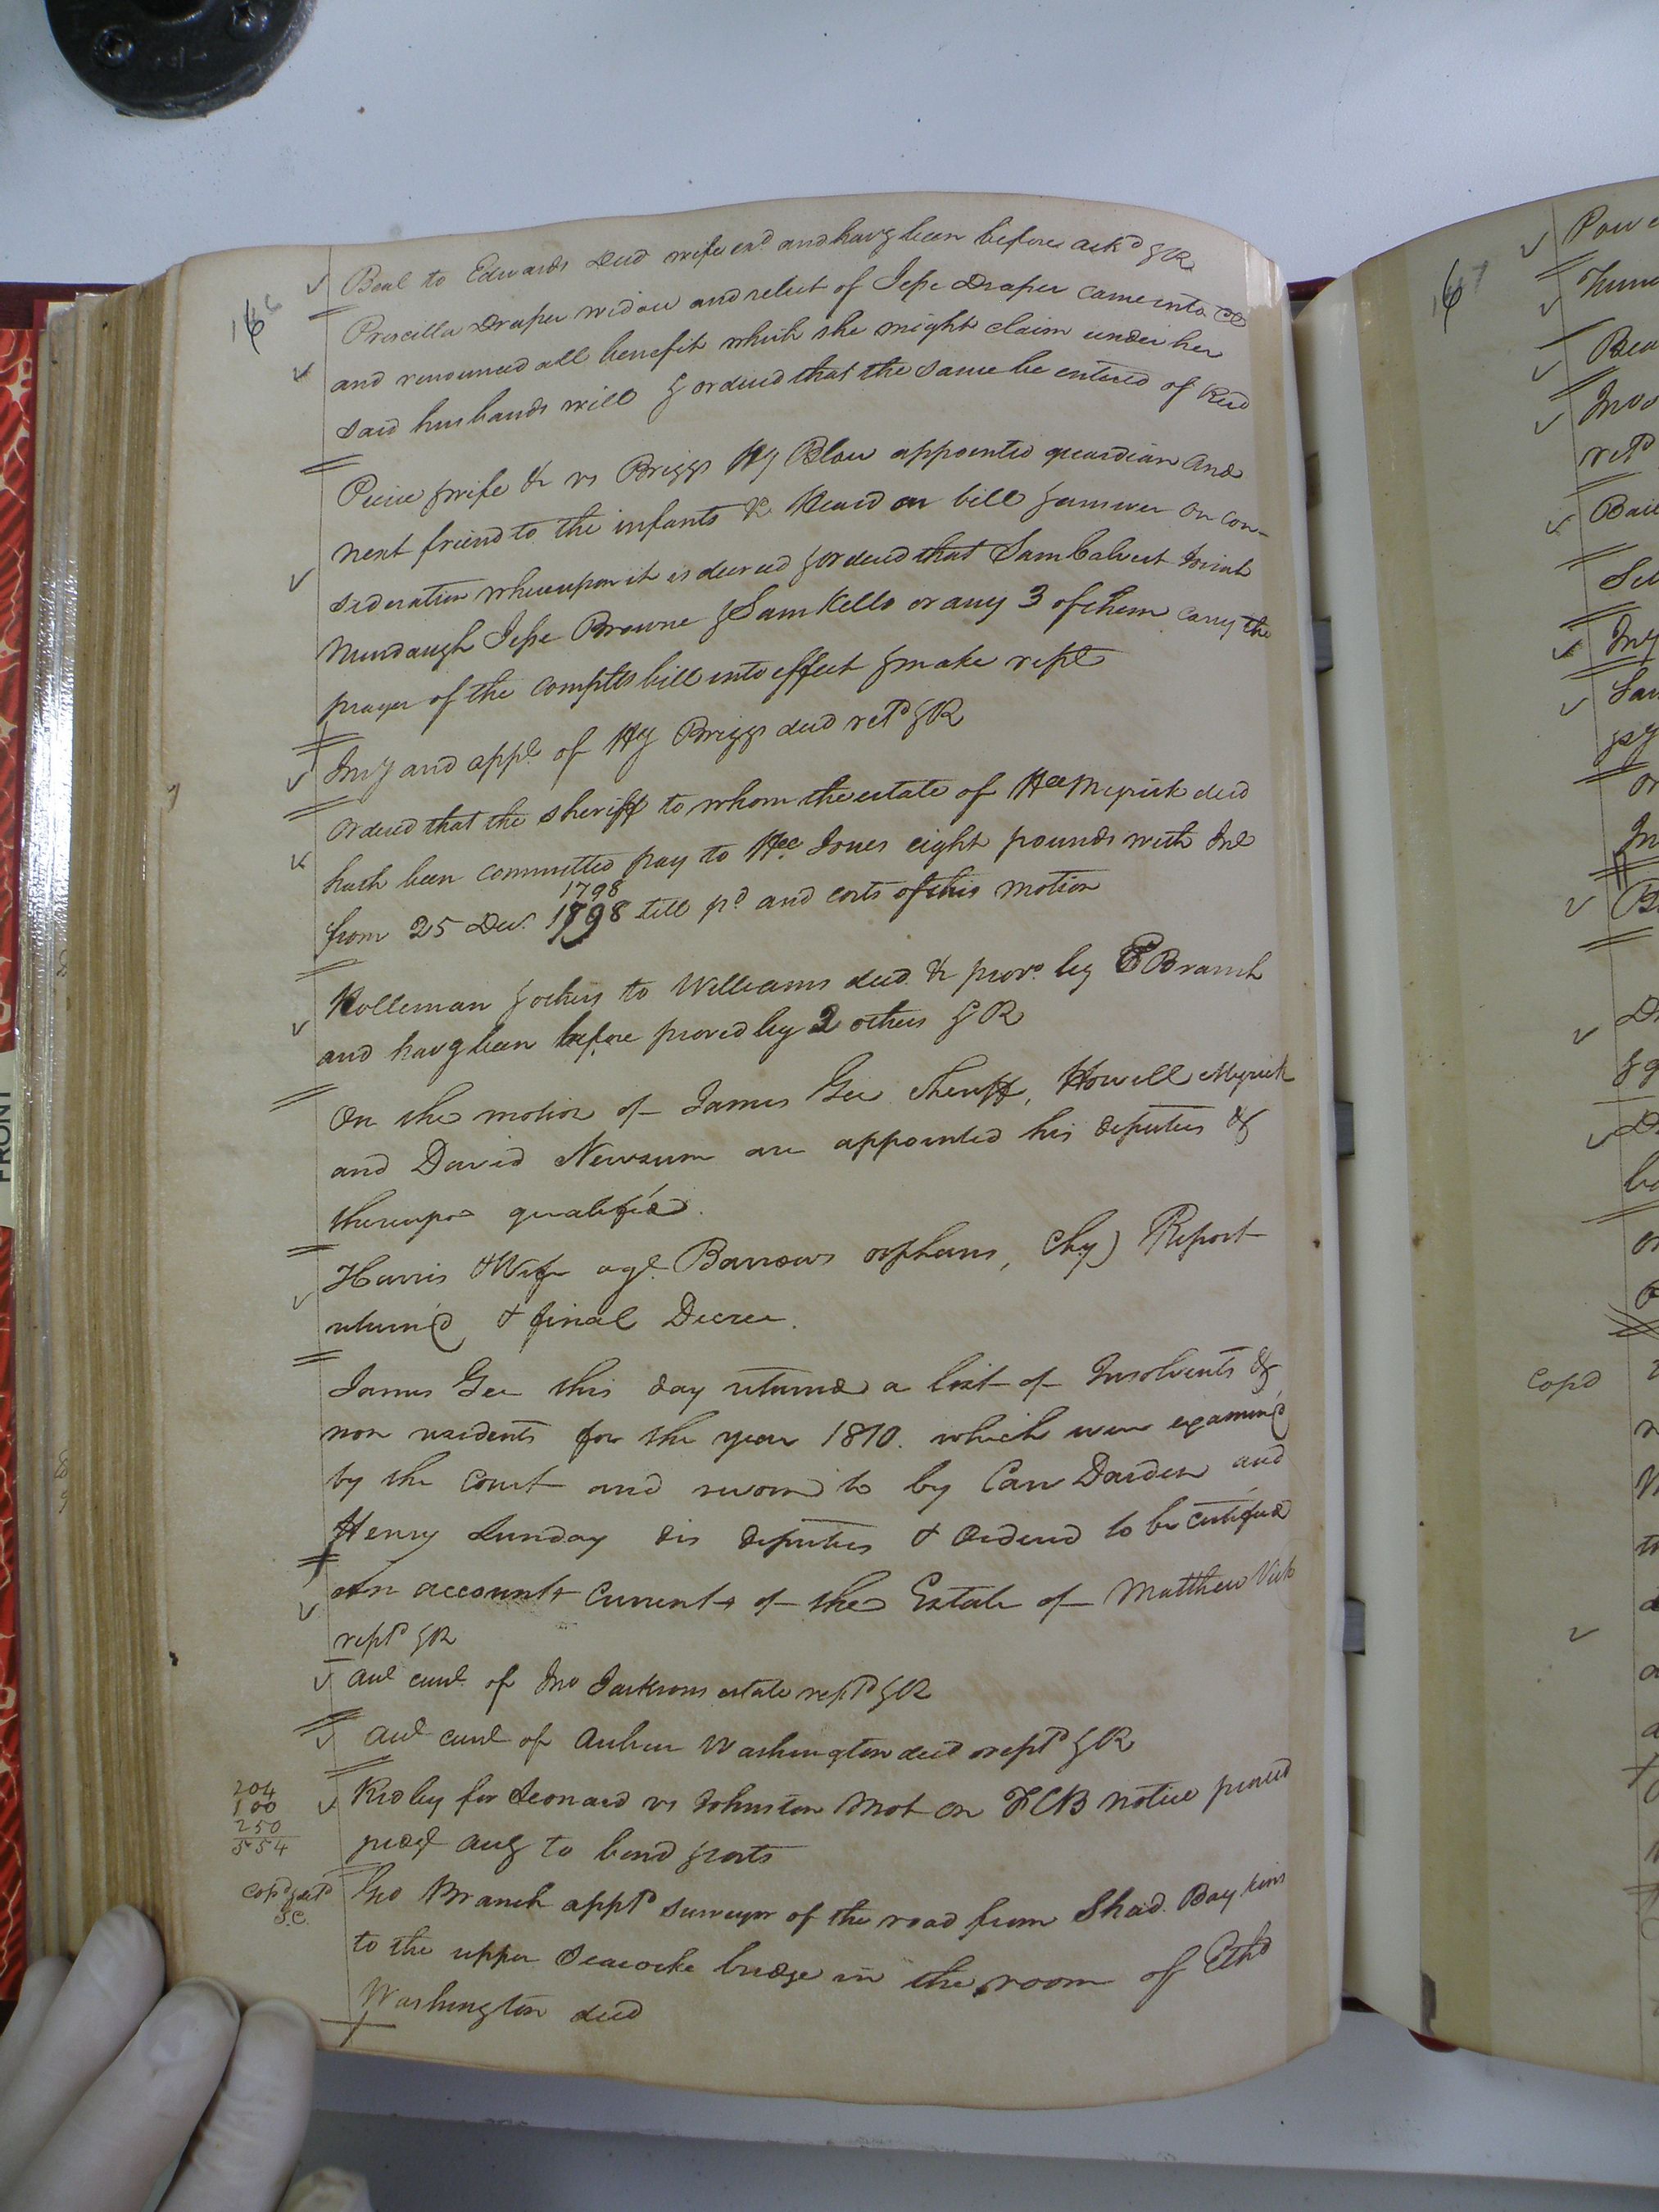 166
Beal to Edwards Deed wife exd and havg been before ackd & R
Priscilla Draper widow and relict of Jesse Draper came into Ct
and renounced all benefit which she might claim under her
said husbands will & ordered that the same be entered of Recd
Peirce & wife &c vs Briggs Hy Blow appointed guardian and
next friend to the infants &c Heard on bill & answer on con-
sideration whereupon it is decreed & ordered that Sam Calvert Josiah
Murdaugh Jesse Browne & Sam Kello or any 3 of them carry the
prayer of the complts bill into effect & make rept
Invy and appt of Hy Briggs decd retd & R
Ordered that the sheriff to whom the estate of Myrick decd
hath been committed pay to Jones eight pounds with Int
1798
from 25 Dec. 1798 till pd and costs of this motion
Holleman & others to Williams deed &c provd by E Branch
and havg been before proved by 2 others & R
On the motion of James Gee Sheriff, Howell Myrick
and David Newsum are appointed his deputies &
thereupon qualified.
Harris & Wife agt Barrows orphans, Chy) Report
return'd & final Decree.
James Gee this day returned a list of Insolvents &
non residents for the year 1810. which were examin'd
by the Court and sworn to by Carr Darden and
Henry Lunday his deputies & Ordered to be certified
An account Current of the Estate of Matthew Vick
rept'd & R
Acct curnt of Jno Jacksons estate reptd & R
Acct curnt of Arthur Washington decd reptd & R
204
100
250
554
Ridley for Leonard vs Johnston Mot on FCB notice proved
judgt accg to bond & costs
Copd & deld
S.C.
Geo Branch apptd surveyor of the road from Shad. Boykins
to the upper Seacocke bridge in the room of Ethd
Washington decd
167
Copd
FRONT